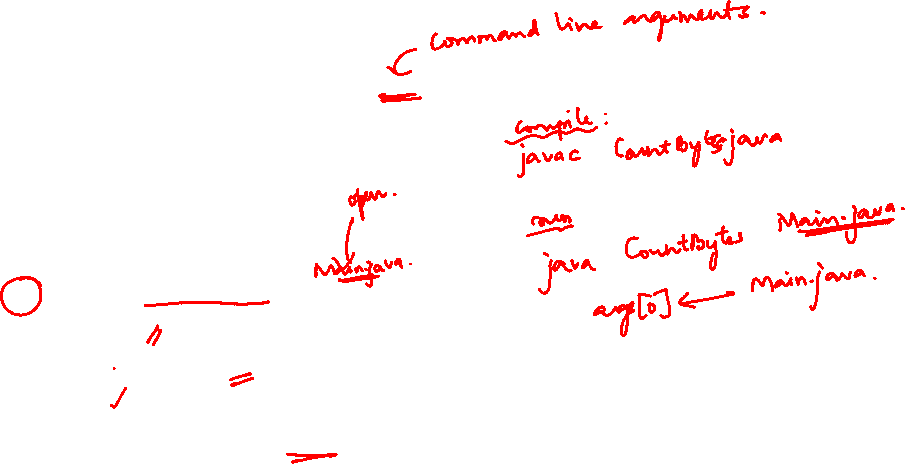 Command line arguments.
compile:
javac CountBytes.java
open.
Main.java.
run
java CountBytes Main.java.
args[0] ← Main.java.